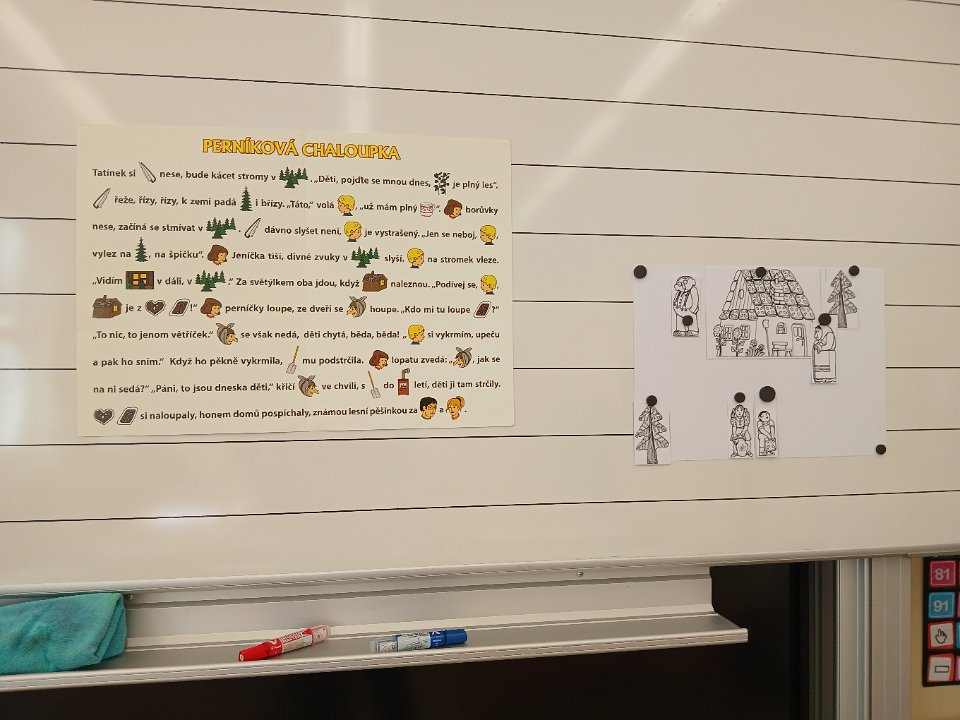 PERNÍKOVÁ CHALOUPKA
Tatínek si nese, bude kácet stromy v . „Děti, pojďte se mnou dnes, je plný les“.
řeže, řízy, řízy, k zemi padá i břízy. „Táto,“ volá , „už mám plný “. borůvky
nese, začíná se stmívat v . dávno slyšet není, je vystrašený. „Jen se neboj, ,
vylez na , na špičku“. Jeníčka tiší, divné zvuky v slyší. na stromek vleze.
„Vidím v dáli, v .“ Za světýlkem oba jdou, když naleznou. „Podívej se, ,
je z !“ perníčky loupe, ze dveří se houpe. „Kdo mi tu loupe ?“
„To nic, to jenom větříček.“ se však nedá, děti chytá, běda, běda! „ si vykrmím, upeču
a pak ho sním.“ Když ho pěkně vykrmila, mu podstrčila. lopatu zvedá: „ , jak se
na ni sedá?“ „Páni, to jsou dneska děti,“ křičí ve chvíli, s do letí, děti ji tam strčily.
si naloupaly, honem domů pospíchaly, známou lesní pěšinkou za a .
81
91